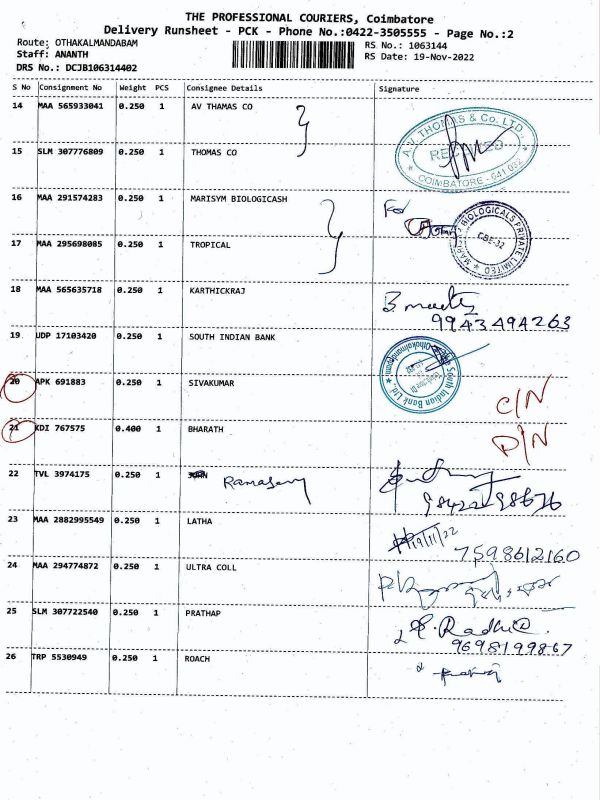 THE PROFESSIONAL COURIERS, Coimbatore
Delivery Runsheet - PCK - Phone No.:0422-3505555 - Page No.:2
Route: OTHAKALMANDABAM RS No.: 1063144
Staff: ANANTH RS Date: 19-Nov-2022
DRS No.: DCJB106314402
S No Consignment No Weight PCS Consignee Details Signature
14 MAA 565933041 0.250 1 AV THAMAS CO
A.V. THOMAS & Co. LTD., RECEIVED COIMBATORE - 641 032
15 SLM 307776809 0.250 1 THOMAS CO
16 MAA 291574283 0.250 1 MARISYM BIOLOGICASH For
BIOLOGICALS PRIVATE LIMITED CBE-32
17 MAA 295698085 0.250 1 TROPICAL
18 MAA 565635718 0.250 1 KARTHICKRAJ
9943494263
19 UDP 17103420 0.250 1 SOUTH INDIAN BANK
South Indian Bank Ltd. Othakalmandapam
20 APK 691883 0.250 1 SIVAKUMAR C/N
21 KDI 767575 0.400 1 BHARATH D/N
22 TVL 3974175 0.250 1 Ramasamy
9842298676
23 MAA 2882995549 0.250 1 LATHA 19/11/22
7598612160
24 MAA 294774872 0.250 1 ULTRA COLL
25 SLM 307722540 0.250 1 PRATHAP Radha
9698199867
26 TRP 5530949 0.250 1 ROACH